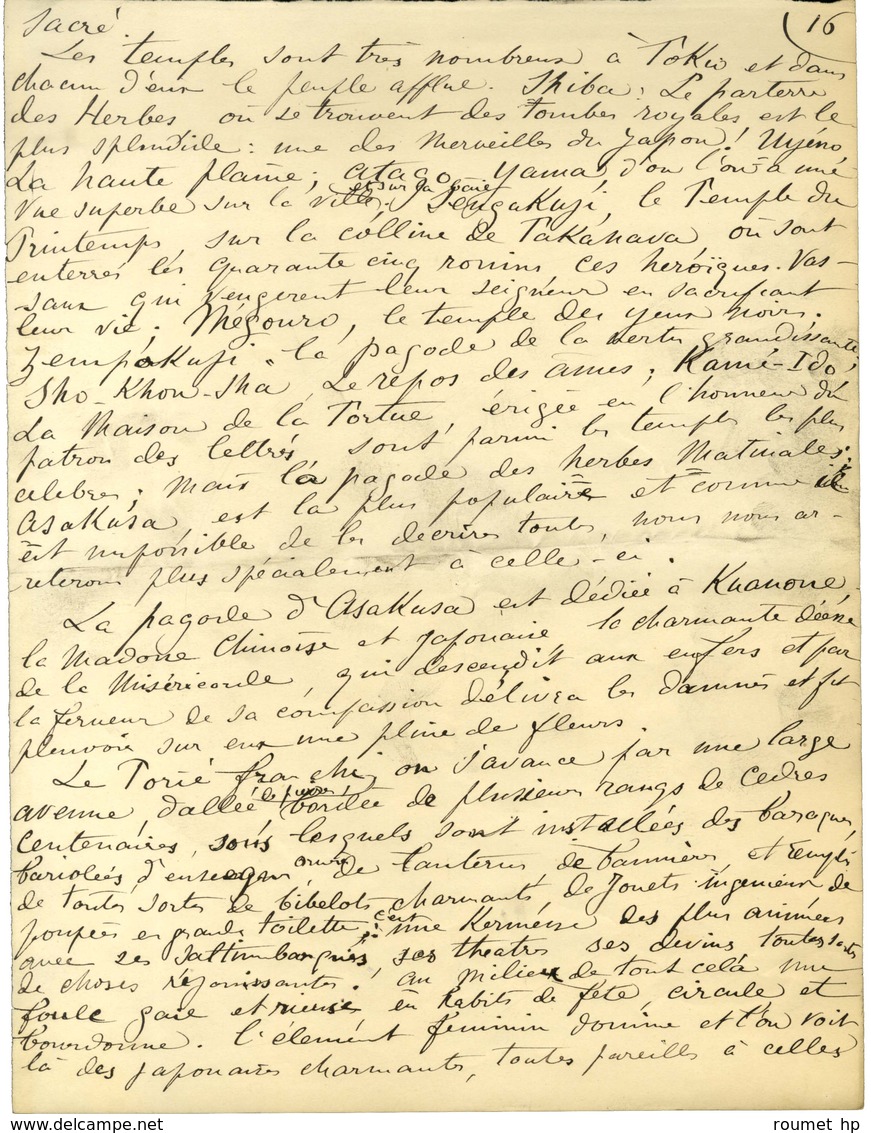 16
sacré.
Les temples sont très nombreux à Tokio et dans
chacun d'eux le peuple afflue. Shiba : Le parterre
des Herbes où se trouvent des tombes royales est le
plus splendide : une des merveilles du Japon ! Uyéno,
La haute plaine ; Atago Yama, d'où l'on a une
vue superbe sur la ville, et sur la baie Sengakuji, le Temple du
Printemps, sur la colline de Takanava où sont
enterrés les quarante cinq ronins ces heroïques. Vas-
saux qui vengerent leur seigneur en sacrifiant
leur vie. Mégouro, le temple des yeux noirs.
Zempokuji - la pagode de la vertu grandissante ;
Sho-Khon-Sha, Le repos des ames ; Kamé-Ido,
La Maison de la Tortue érigée en l'honneur du
patron des lettrés, sont parmi les temples les plus
célèbres ; mais la pagode des herbes Matinales :
Asakusa, est la plus populaire et comme il
est impossible de les decrire toutes, nous nous ar-
rêterons plus spécialement à celle-ci.
La pagode d'Asakusa est dédiée à Kuanone
la Madone Chinoise et Japonaise, la charmante déesse
de la Miséricorde, qui descendit aux enfers et par
la ferveur de sa compassion délivra les damnés et fit
pleuvoir sur eux une pluie de fleurs.
Le Torié franchi, on s'avance par une large
avenue, dallée de pierres bordée de plusieurs rangs de cèdres
centenaires, sous lesquels sont installées des baraques,
bariolées d'enseignes, de lanternes, de bannières, et remplis
de toutes sortes de bibelots charmants, de Jouets ingenieux de
poupées en grande toilette ; c'est une Kermesse des plus animées
avec ses saltimbanques ses theatres ses devins toutes sortes
de choses réjouissantes ! au milieu de tout celà une
foule gaie et rieuse en habits de fête, circule et
bourdonne. l'élément feminin domine et l'on voit
là des japonaises charmantes, toutes pareilles à celles
roumet hp